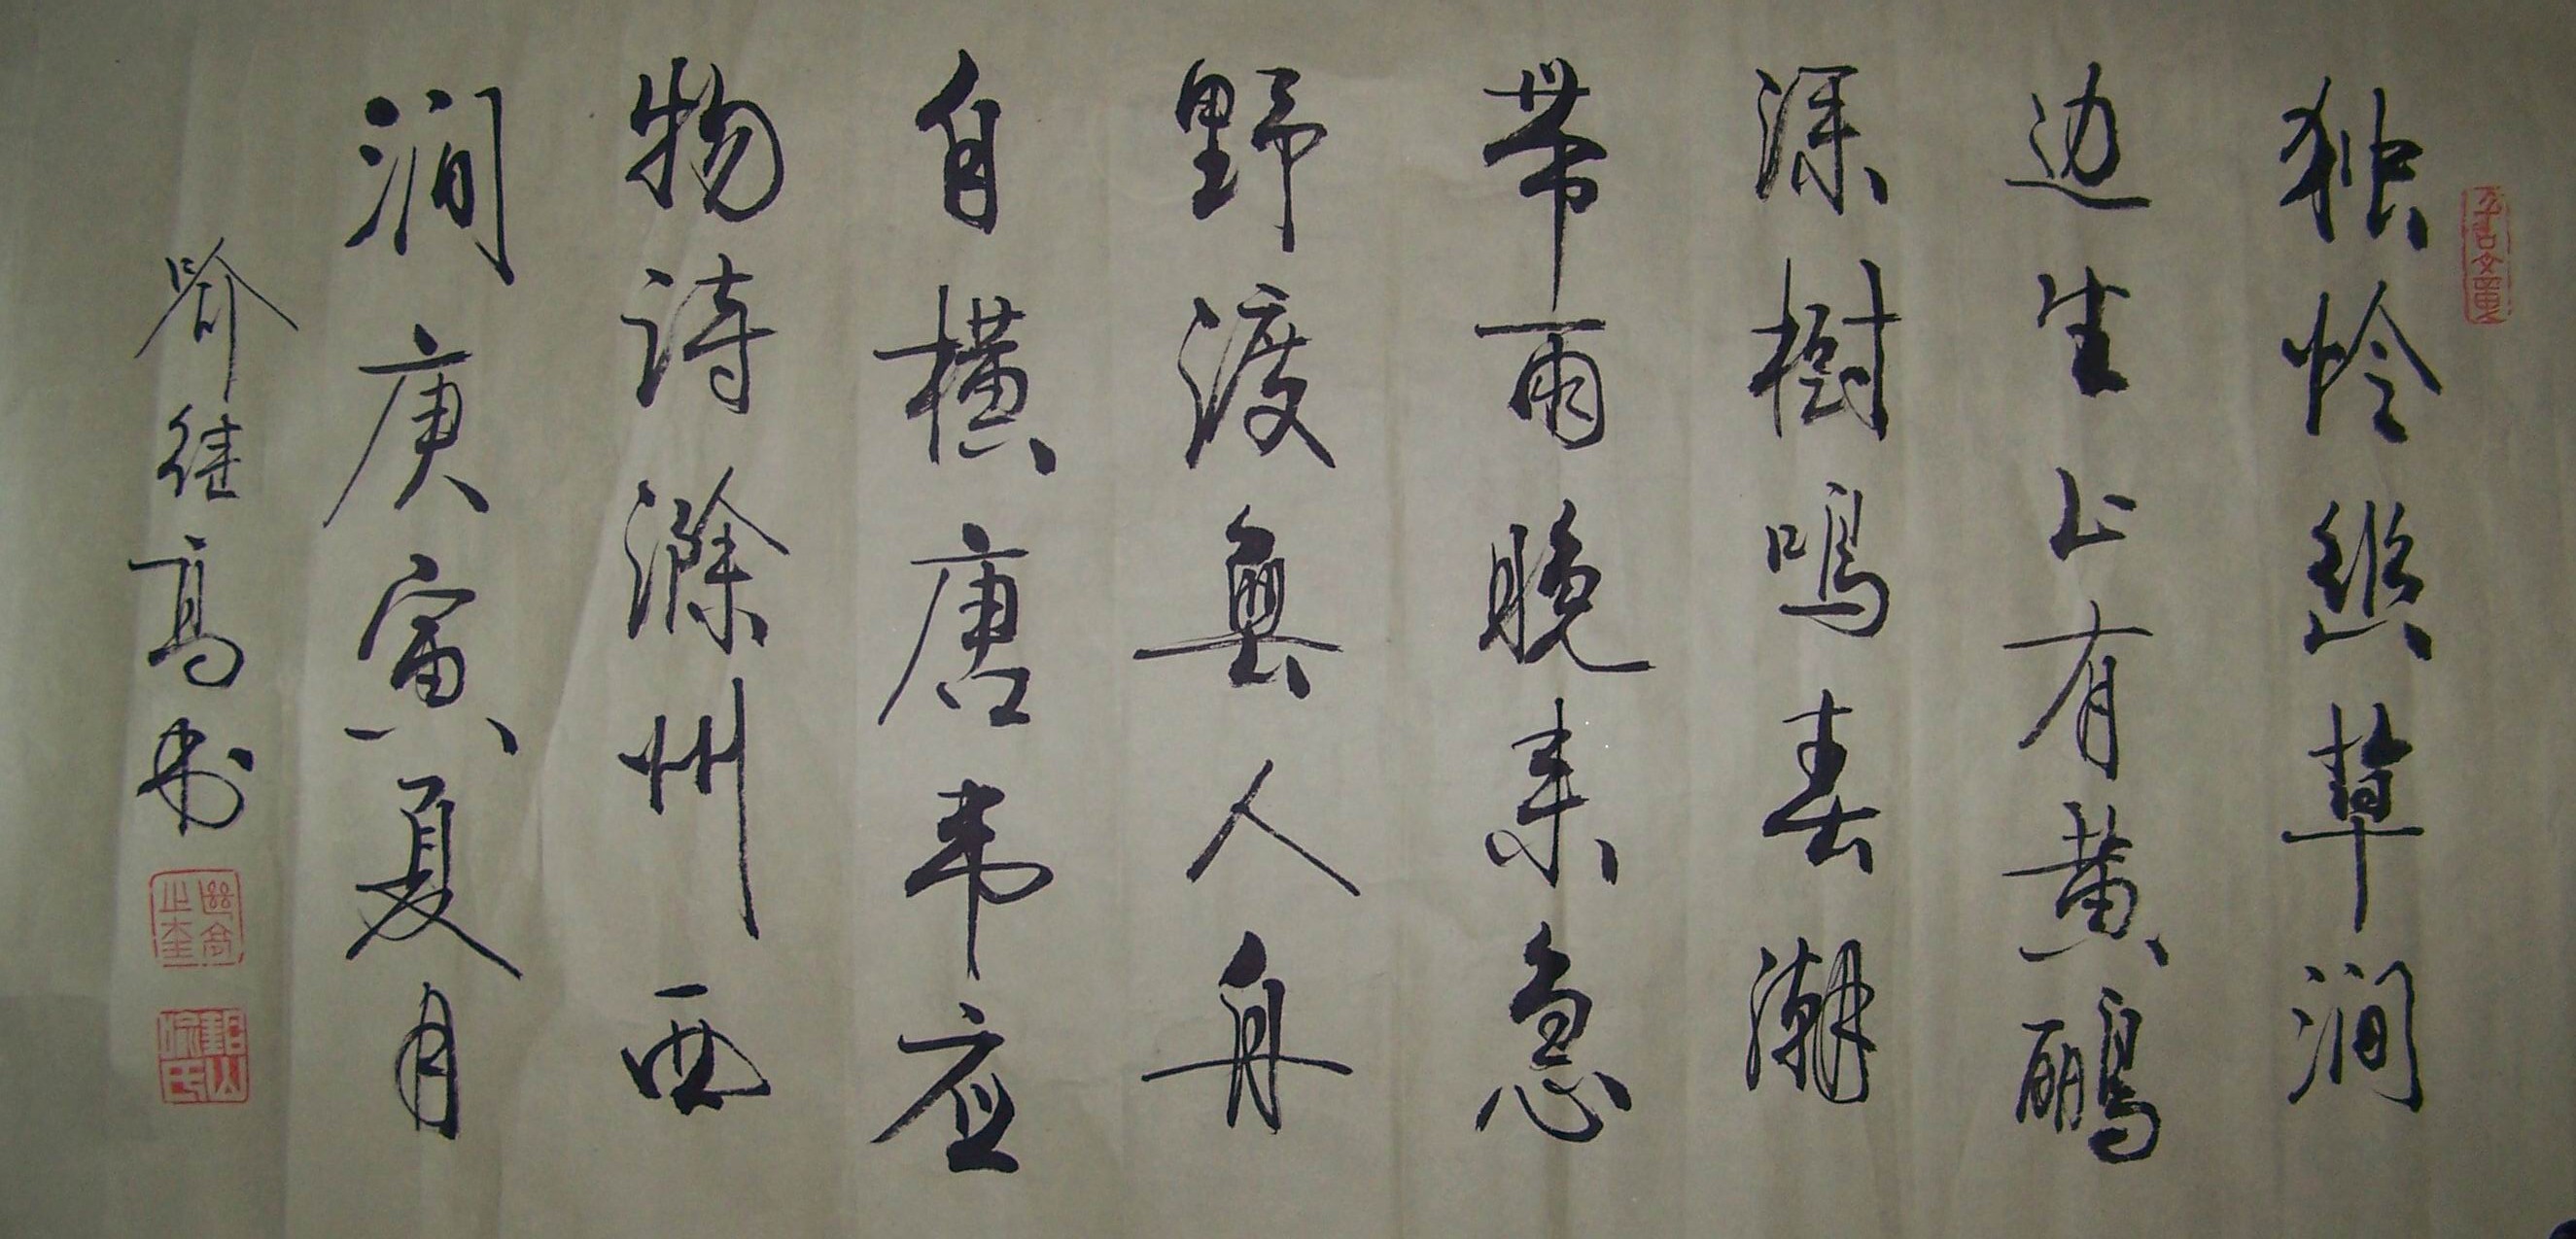 独怜幽草涧
边生上有黄鹂
深樹鸣春潮
带雨晚来急
野渡無人舟
自横唐韦应
物诗滁州西
涧庚寅夏月
喻继高书